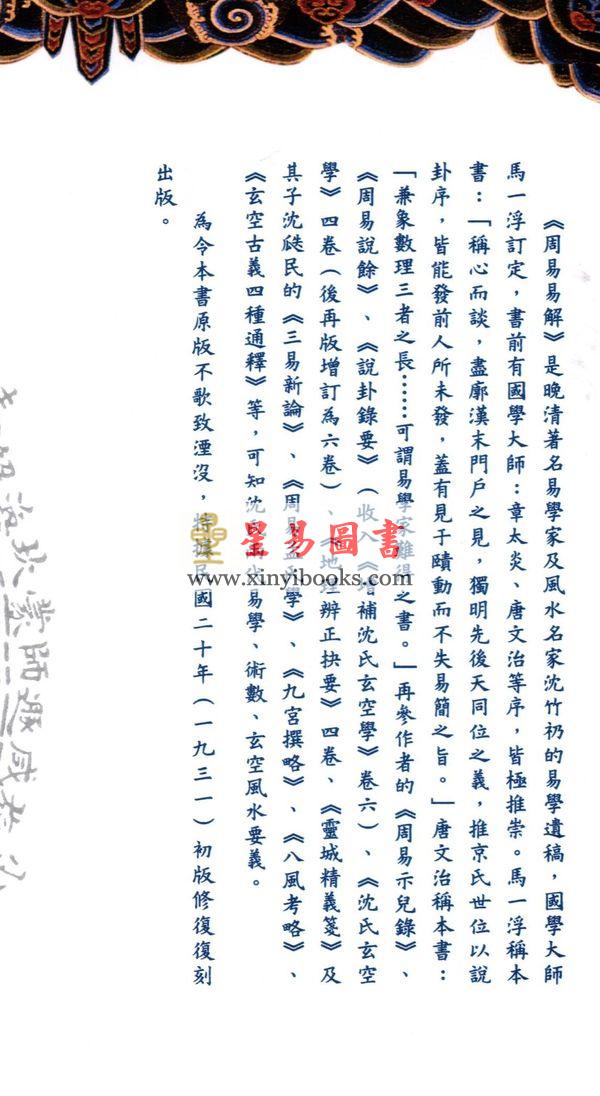 《周易易解》是晚清著名易學家及風水名家沈竹礽的易學遺稿，國學大師
馬一浮訂定，書前有國學大師：章太炎、唐文治等序，皆極推崇。馬一浮稱本
書：「稱心而談，盡廓漢末門戶之見，獨明先後天同位之義，推京氏世位以說
卦序，皆能發前人所未發，蓋有見于賾動而不失易簡之旨。」唐文治稱本書：
「兼象數理三者之長……可謂易學家難得之書。」再參作者的《周易示兒錄》、
《周易說餘》、《說卦錄要》（收入《增補沈氏玄空學》卷六）、《沈氏玄空
學》四卷（後再版增訂為六卷）、《地理辨正抉要》四卷、《靈城精義箋》及
其子沈瓞民的《三易新論》、《周易孟氏學》、《九宮撰略》、《八風考略》、
《玄空古義四種通釋》等，可知沈氏玄空易學、術數、玄空風水要義。
為令本書原版不歌致湮沒，特據民國二十年（一九三一）初版修復復刻
出版。
星易圖書
www.xinyibooks.com